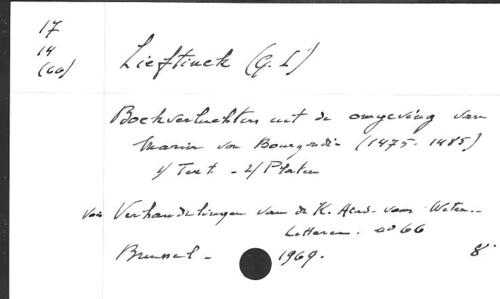 17
14
(66)
Lieftinck (G. I)
Boekverluchters uit de omgeving van
Maria van Bourgondië (1475-1485)
1/ Text - 2/ Platen
Voir Verhandelingen van de K. Acad. voor Weten.-
Letteren. no 66
Brussel - 1969. 8°